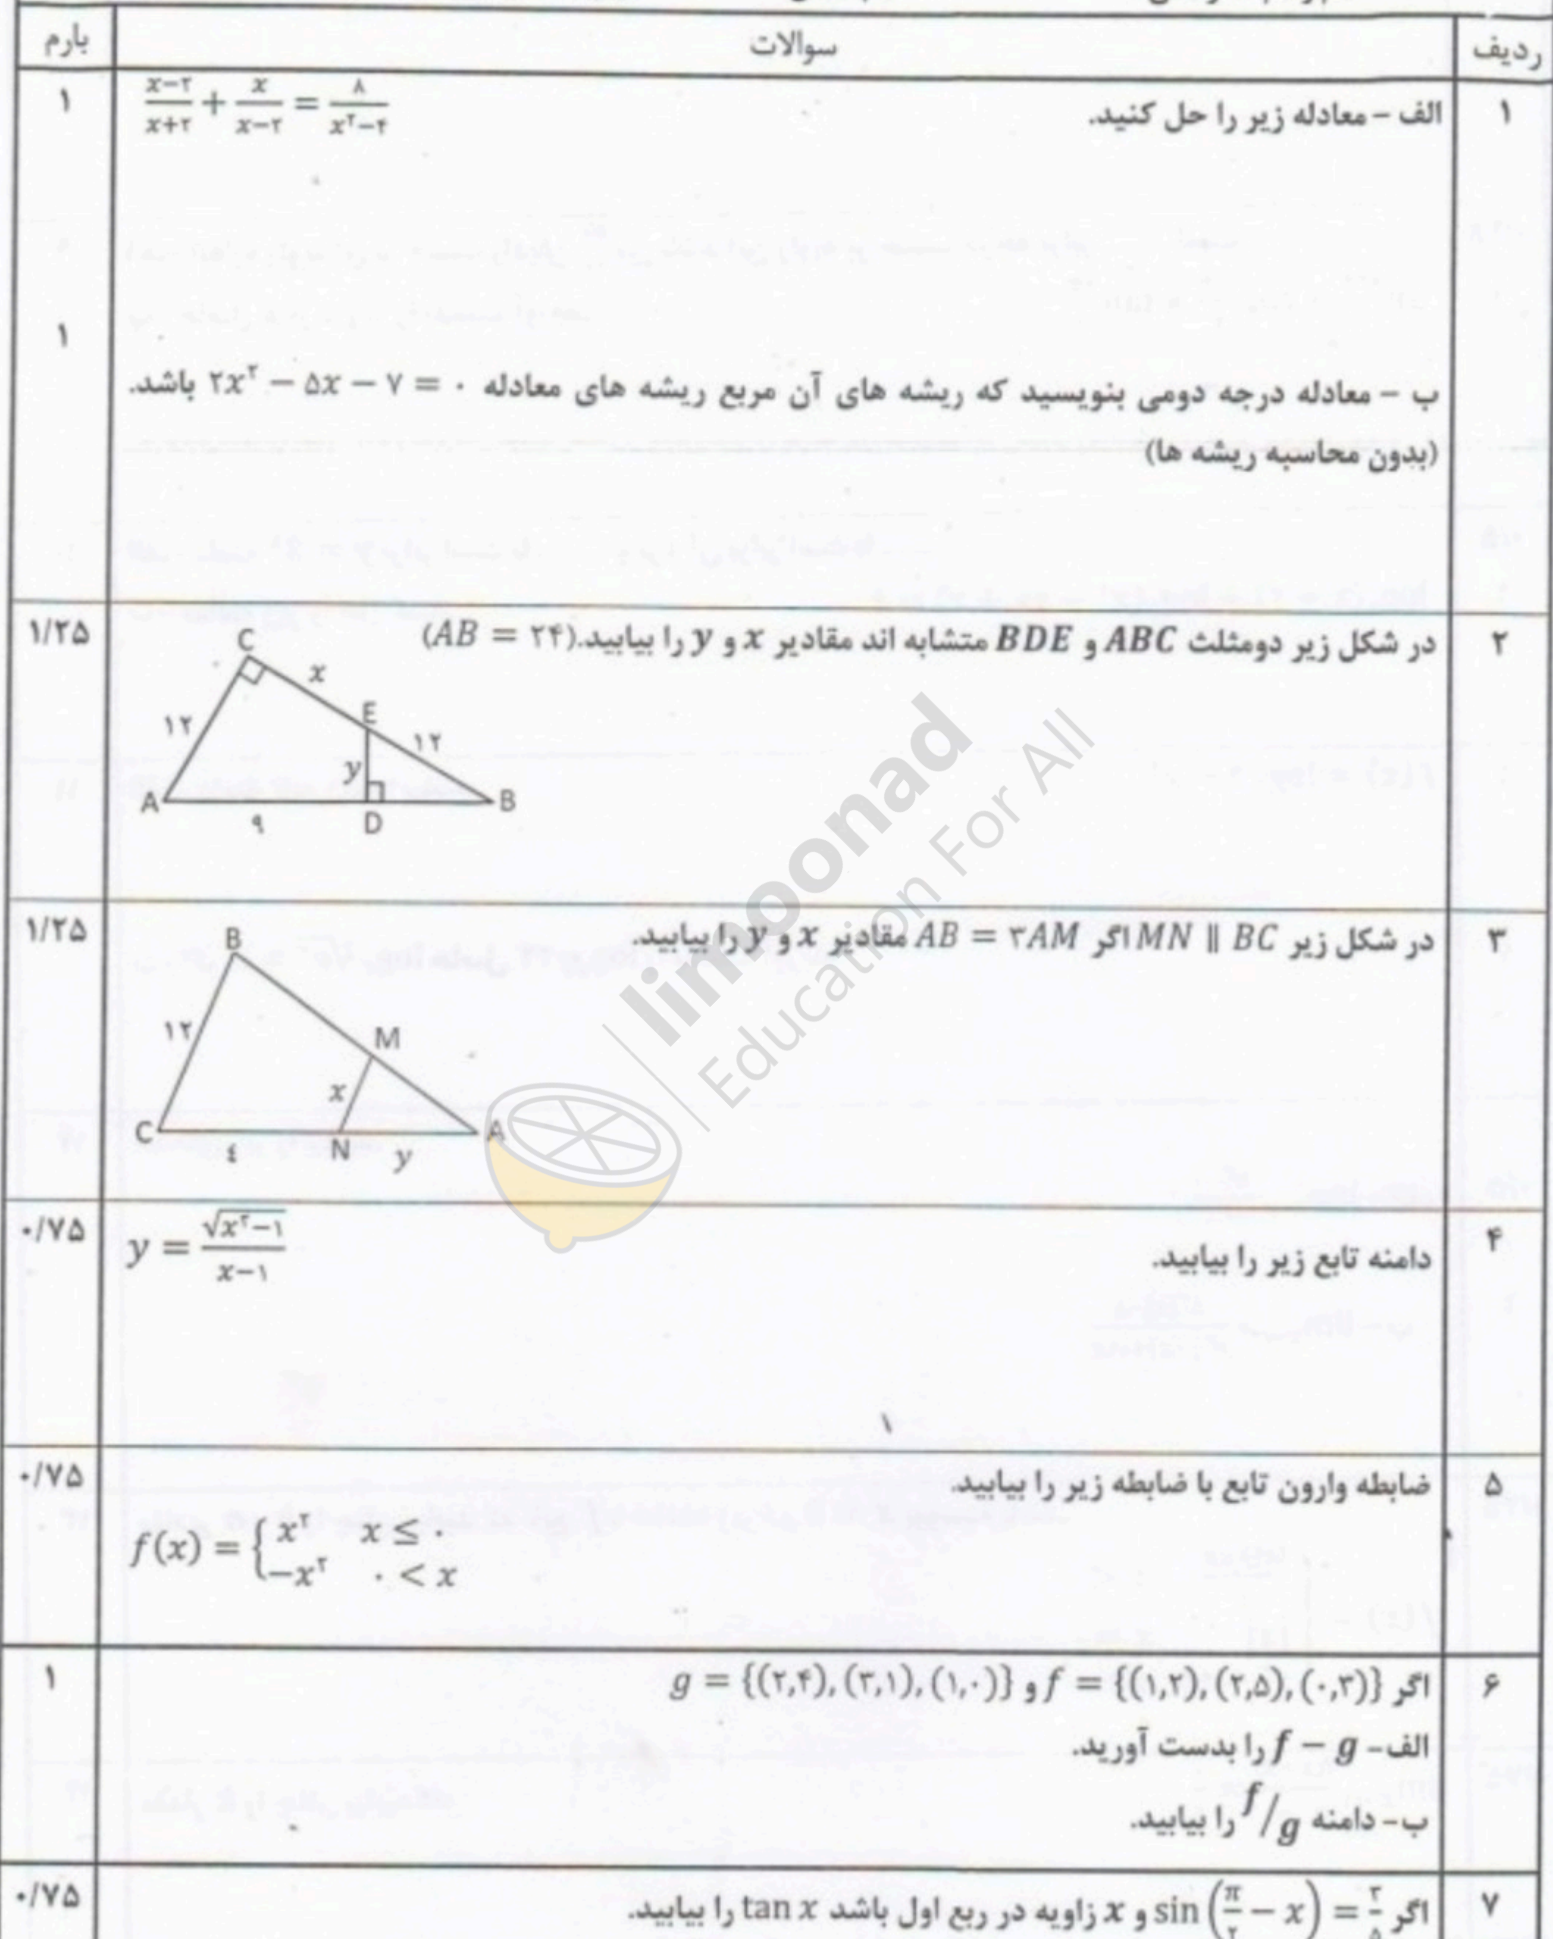 ردیف سوالات بارم
۱ الف – معادله زیر را حل کنید. (x−۲)/(x+۲) + x/(x−۲) = ۸/(x^۲−۴) ۱
ب – معادله درجه دومی بنویسید که ریشه های آن مربع ریشه های معادله ۲x^۲ − ۵x − ۷ = ۰ باشد. ۱
(بدون محاسبه ریشه ها)
۲ در شکل زیر دومثلث ABC و BDE متشابه اند مقادیر x و y را بیابید.(AB = ۲۴) ۱/۲۵
C
x
E
۱۲ ۱۲
y
A B
۹ D
۳ در شکل زیر MN ∥ BC اگر AB = ۳AM مقادیر x و y را بیابید. ۱/۲۵
B
۱۲ M
x
C A
٤ N y
limoonad
Education For All
۴ دامنه تابع زیر را بیابید. y = √(x^۲−۱)/(x−۱) ۰/۷۵
۱
۵ ضابطه وارون تابع با ضابطه زیر را بیابید. ۰/۷۵
f(x) = { x^۲ x ≤ ۰
−x^۲ ۰ < x
۶ اگر f = {(۱,۲), (۲,۵), (۰,۳)} و g = {(۲,۴), (۳,۱), (۱,۰)} ۱
الف- f − g را بدست آورید.
ب- دامنه f/g را بیابید.
۷ اگر sin (π/۲ − x) = ۳/۵ و x زاویه در ربع اول باشد tan x را بیابید. ۰/۷۵